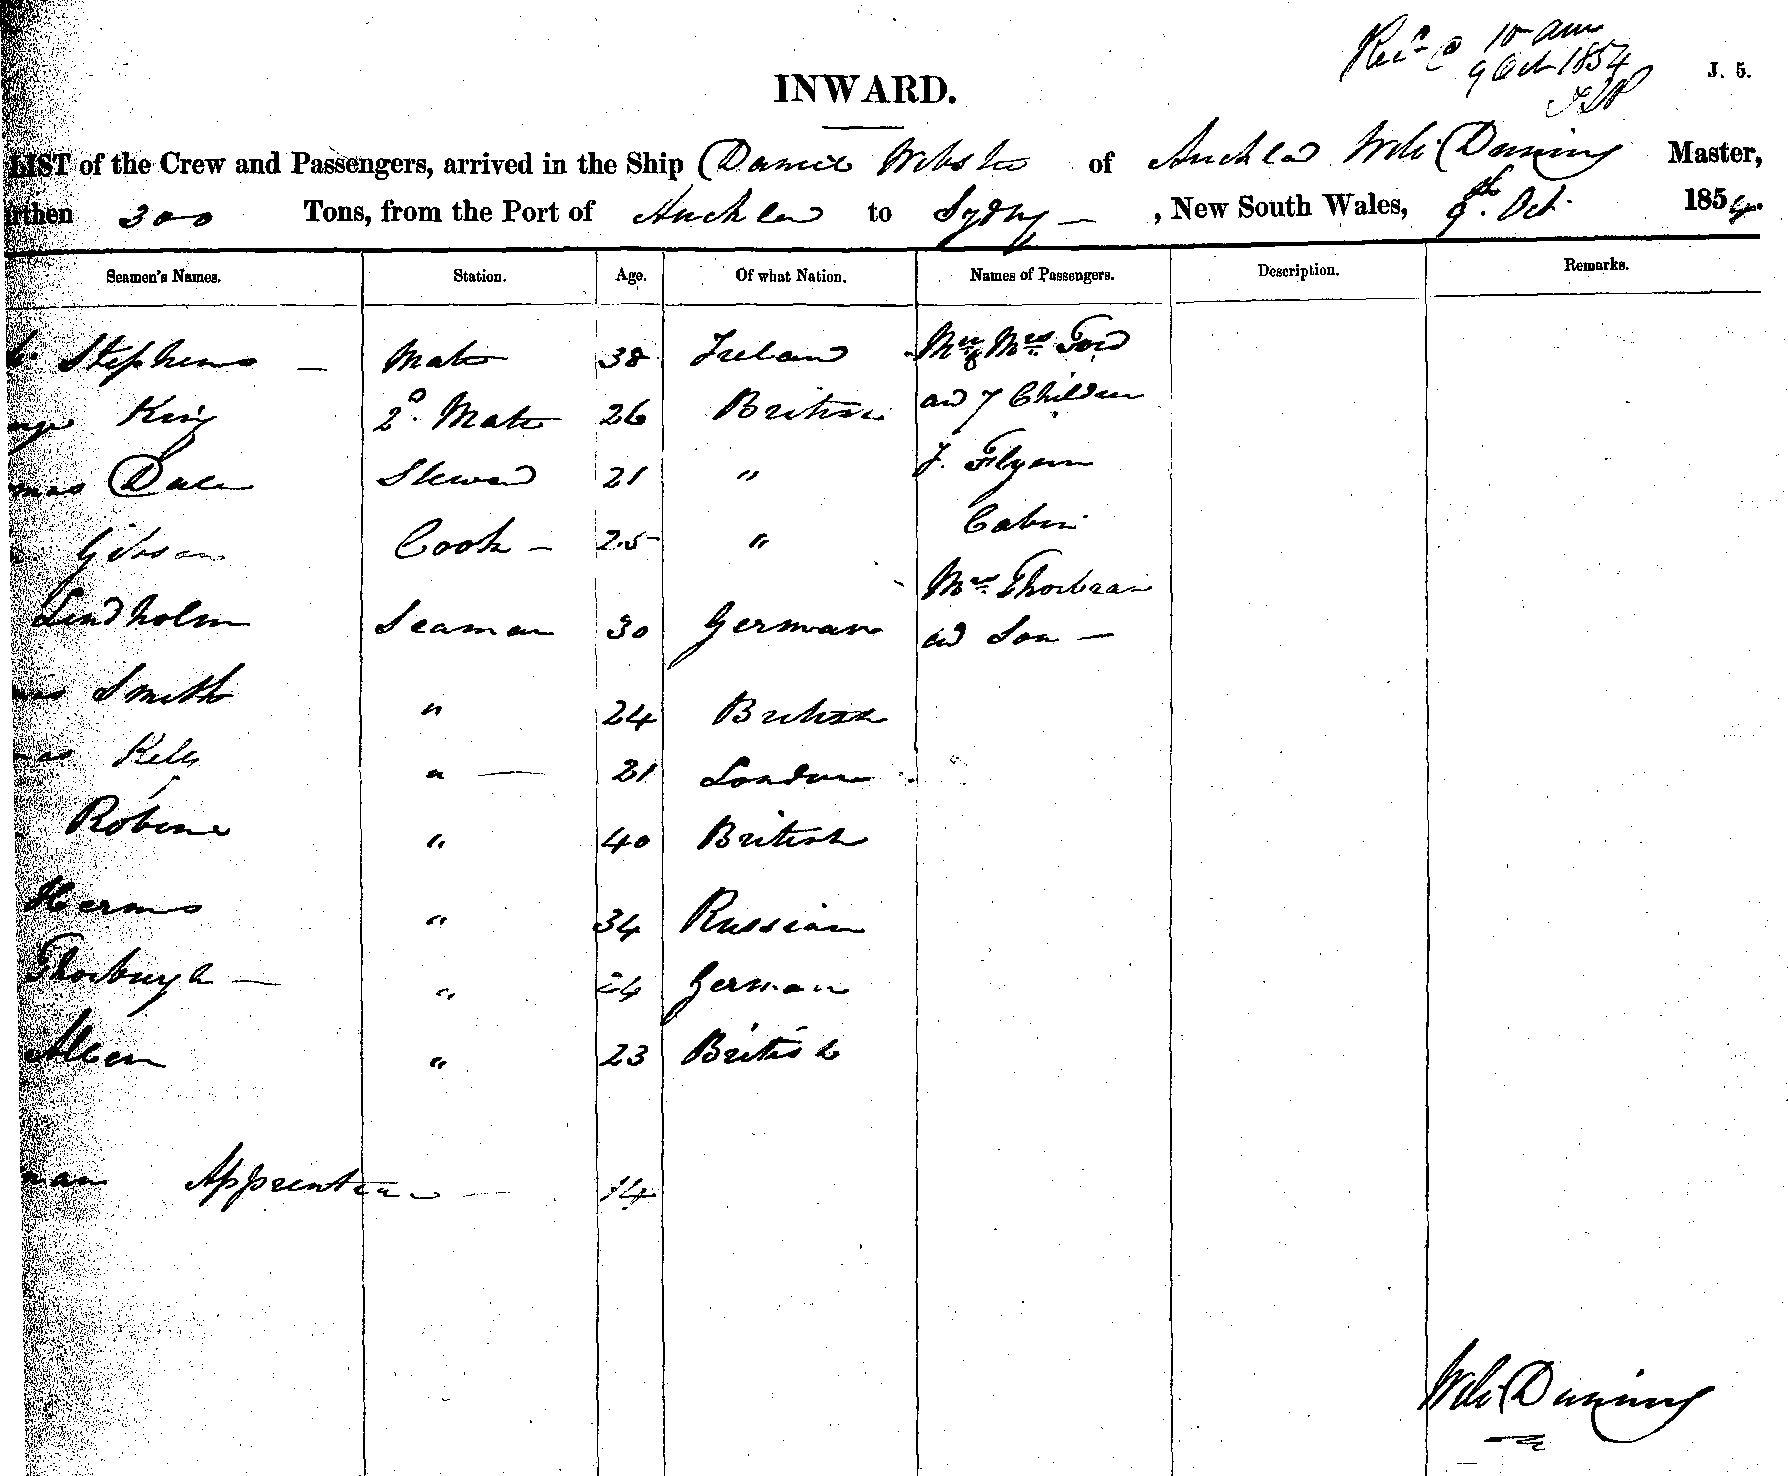 Recd @ 10 am
9 Oct 1854
J. 5.
INWARD.
LIST of the Crew and Passengers, arrived in the Ship Daniel Webster of Auckland Wm Dunning Master,
rthen 300 Tons, from the Port of Auckland to Sydney , New South Wales, 9th Oct. 1854.
Seamen's Names. Station. Age. Of what Nation. Names of Passengers. Description. Remarks.
Stephens — Mate 38 Ireland Mr & Mrs Ford
King 2d. Mate 26 British and 7 Children
mas Dale Steward 21 " J. Flyen
Gibson Cook — 25 " Cabin
Lindholm Seaman 30 German Mrs Thorbran and Son —
Smith " 24 British
mas Kelly " — 21 London
Robine " 40 British
Herms " 34 Russian
Thorburgh — " 24 German
Allen " 23 British
man Apprentice — 14
Wm Dunning